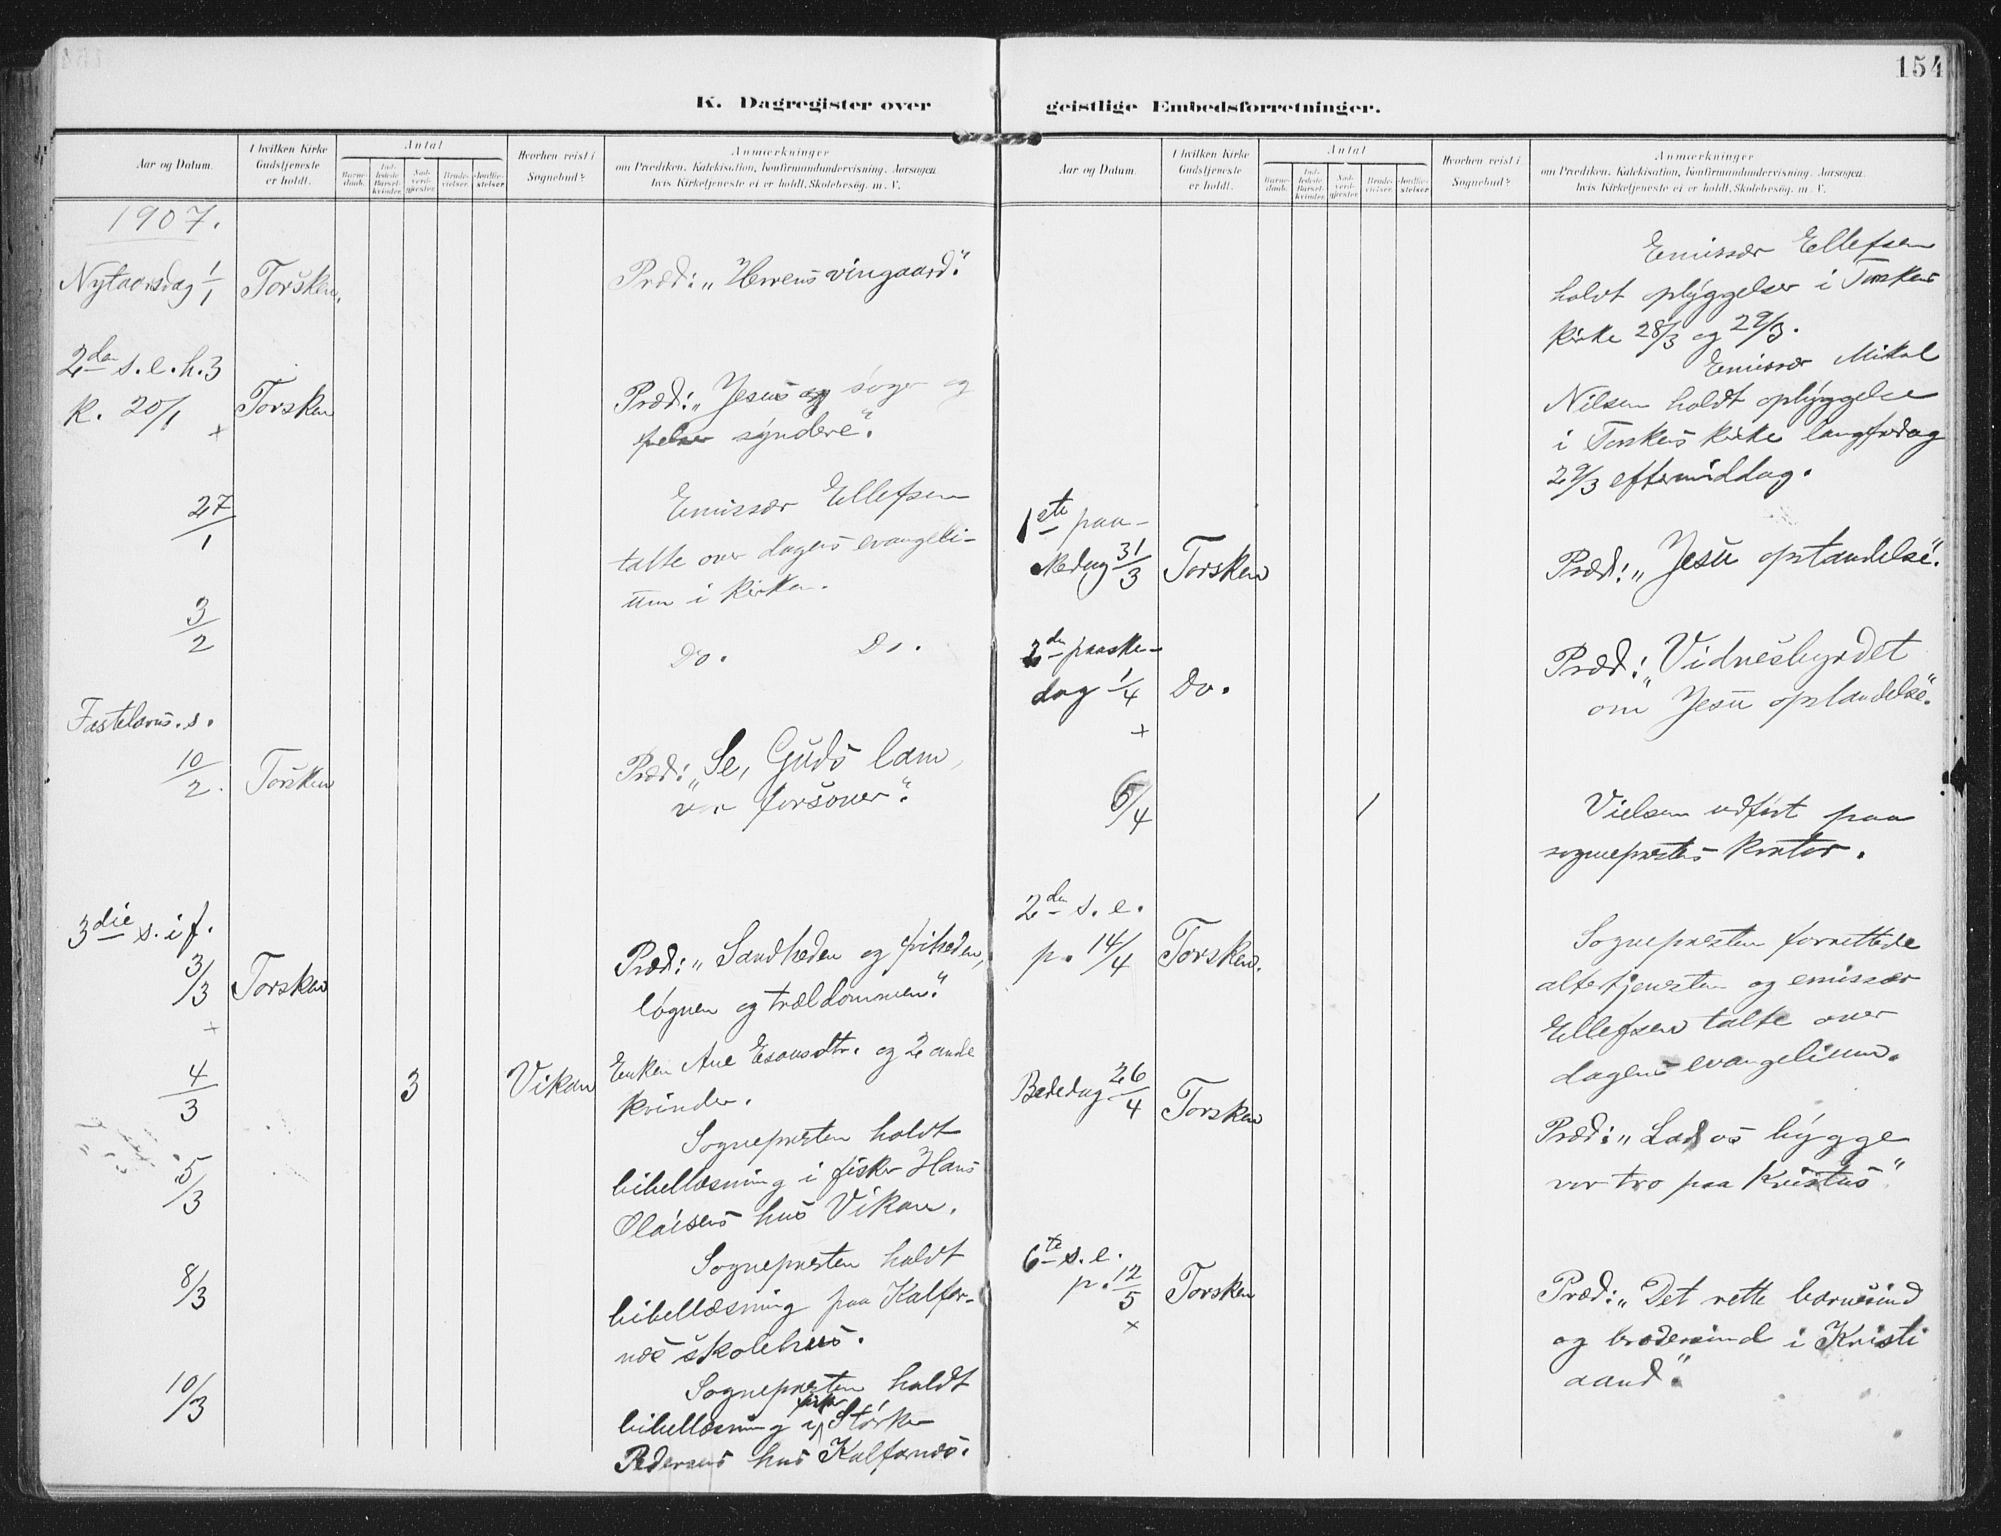 154
K. Dagregister over geistlige Embedsforretninger.
Aar og Datum.
I hvilken Kirke Gudstjeneste er holdt.
Antal
Barnedaab.
Indledede Barselkvinder.
Nadverdgjester.
Brudevielser.
Jordfæstelser.
Hvorhen reist i Sognebud?
Anmærkninger
om Prædiken, Katekisation, Konfirmandundervisning. Aarsagen
hvis Kirketjeneste ei er holdt, Skolebesøg. m. V.
1907.
Nytaarsdag 1/1 Torsken. Præd: „Herrens vingaard."
2den s. e. h. 3
k. 20/1 Torsken Præd: „Jesus søger og
+ syndere".
27/1 Emissær Ellefsen
talte over dagens evangeli-
um i kirken.
3/2 Do. Do.
Fastelavns. s.
10/2. Torsken Præd: „Se, Guds lam,
vor forsoner".
3die s. i f.
3/3 Torsken Præd: „Sandheden og friheden,
+ løgnen og trældommen."
4/3 3 Vikan Enken Ane Esausdtr. og 2 andre
kvinder.
5/3 Sognepresten holdt
bibellæsning i fisker Hans
Olaisens hus Vikan.
8/3 Sognepresten holdt
bibellæsning paa Kalfar-
næs skolehus.
10/3 Sognepresten holdt
bibellæsning i fisker Størker
Pedersens hus Kalfarnæs.
Aar og Datum.
I hvilken Kirke Gudstjeneste er holdt.
Antal
Barnedaab.
Indledede Barselkvinder.
Nadverdgjester.
Brudevielser.
Jordfæstelser.
Hvorhen reist i Sognebud?
Anmærkninger
om Prædiken, Katekisation, Konfirmandundervisning. Aarsagen
hvis Kirketjeneste ei er holdt, Skolebesøg. m. V.
Emissær Ellefsen
holdt opbyggelser i Torskens
kirke 28/3 og 29/3.
Emissær Mikal
Nilsen holdt opbyggelse
i Torskens kirke langfredag
29/3 eftermiddag.
1ste paa-
skedag 31/3 Torsken Præd: „Jesu opstandelse".
2den paaske-
dag 1/4 Do. Præd: „Vidnesbyrdet
+ om Jesu opstandelse".
6/4 1 Vielsen udført paa
sogneprestens kontor.
2den s. e.
p. 14/4 Torsken. Sognepresten forrettede
altertjenesten og emissær
Ellefsen talte over
dagens evangelium.
Bededag 26/4 Torsken Præd: „Lad os bygge
vor tro paa Kristus"
6te s. e.
p. 12/5 Torsken Præd: „Det rette barnesind
+ og brodersind i Kristi
aand".